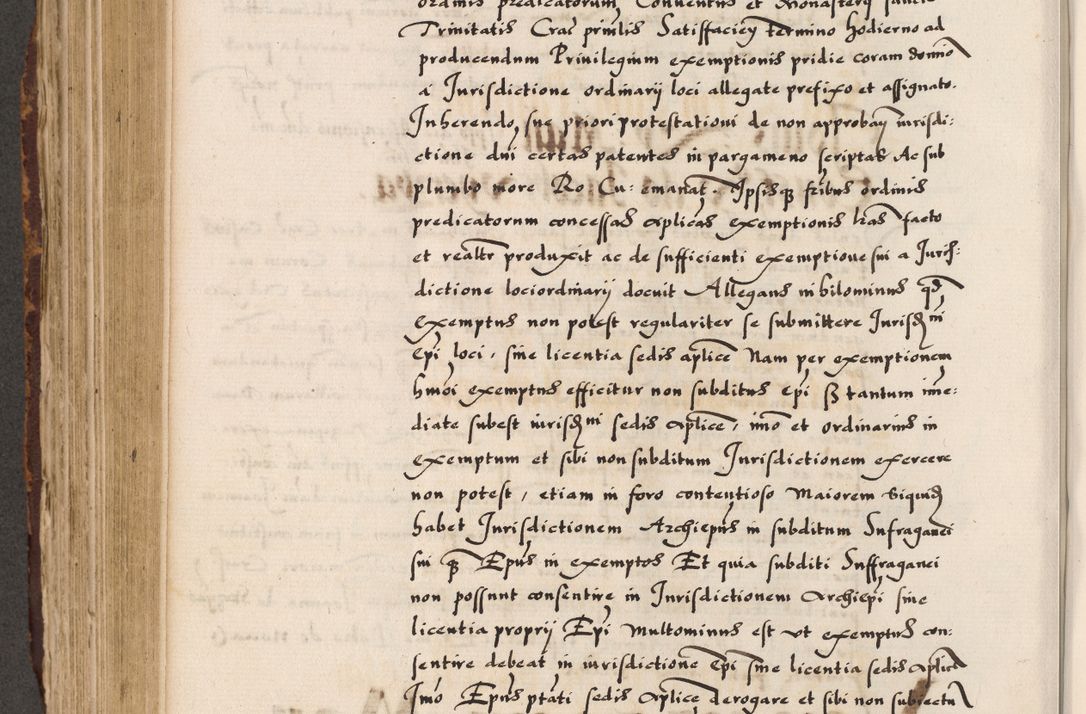 ordinis predicatorum, Conventus et Monasterij sancte
Trinitatis Crac
Satisfaciens termino hodierno ad
producendum Privilegium exemptionis pridie coram domino
a Jurisdictione ordinarij loci allegate prefixo et assignato.
Inherendo sue priori protestationi de non approban iurisdi:
ctione dni certas patentes in pargameno scriptas Ac sub
plumbo more Ro Cu: emanat. Ipsisq fribus ordinis
predicatorum concessas aplicas exemptionis lras facto
et realtr produxit ac de sufficienti exemptione sui a Juris-
dictione lociordinarij docuit Allegans nihilominus qd
exemptus non potest regulariter se submittere Jurisdni
Epi loci, sine licentia sedis aplice Nam per exemptionem
hmoi exemptus efficitur non subditus Epi sz tantum ime:
diate subest iurisdni sedis aplice, imo et ordinarius in
exemptum et sibi non subditum Jurisdictionem exercere
non potest, etiam in foro contentioso Maiorem siquid
habet Jurisdictionem Archiepus in subditum Suffraganei
sui q Epus in exemptos Et quia subditi Suffraganei
non possunt consentire in Jurisdictionem Archiepi sine
licentia proprij Epi Multominus est ut exemptus con:
sentire debeat in iurisdictione Epi sine licentia sedis aplice
Imo Epus ptati sedis aplice derogare et sibi non subiectu